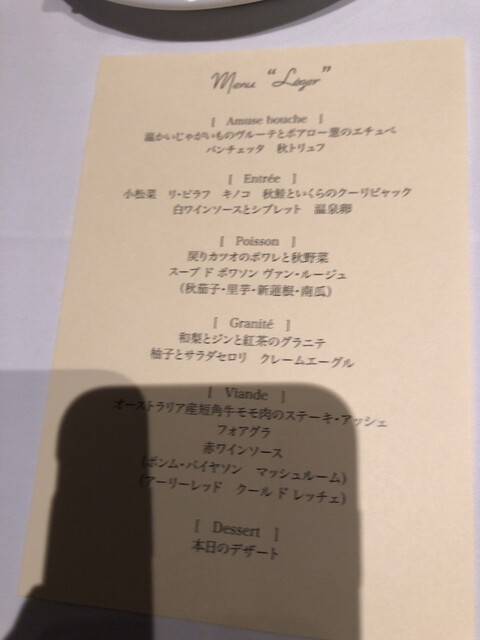 Menu “Léger”
[ Amuse bouche ]
温かいじゃがいものヴルーテとポアロー葱のエチュベ
パンチェッタ 秋トリュフ
[ Entrée ]
小松菜 リ・ピラフ キノコ 秋鮭といくらのクーリビヤック
白ワインソースとシブレット 温泉卵
[ Poisson ]
戻りカツオのポワレと秋野菜
スープ ド ポワソン ヴァン・ルージュ
(秋茄子・里芋・新蓮根・南瓜)
[ Granité ]
和梨とジンと紅茶のグラニテ
柚子とサラダセロリ クレームエーグル
[ Viande ]
オーストラリア産短角牛モモ肉のステーキ・アッシェ
フォアグラ
赤ワインソース
(ポンム・パイヤソン マッシュルーム)
(アーリーレッド クール ド レッチェ)
[ Dessert ]
本日のデザート